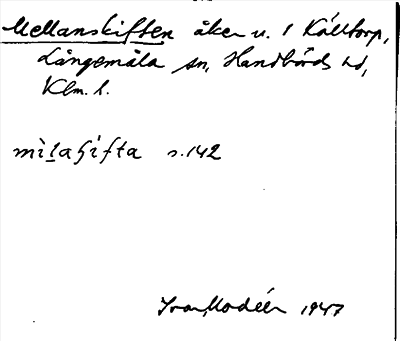 Mellanskiften åker u. 1 Källtorp,
Långemåla sn, Handbörds hd,
Klm. l.
mìlaʃifta s. 142
Ivar Modéer 1947